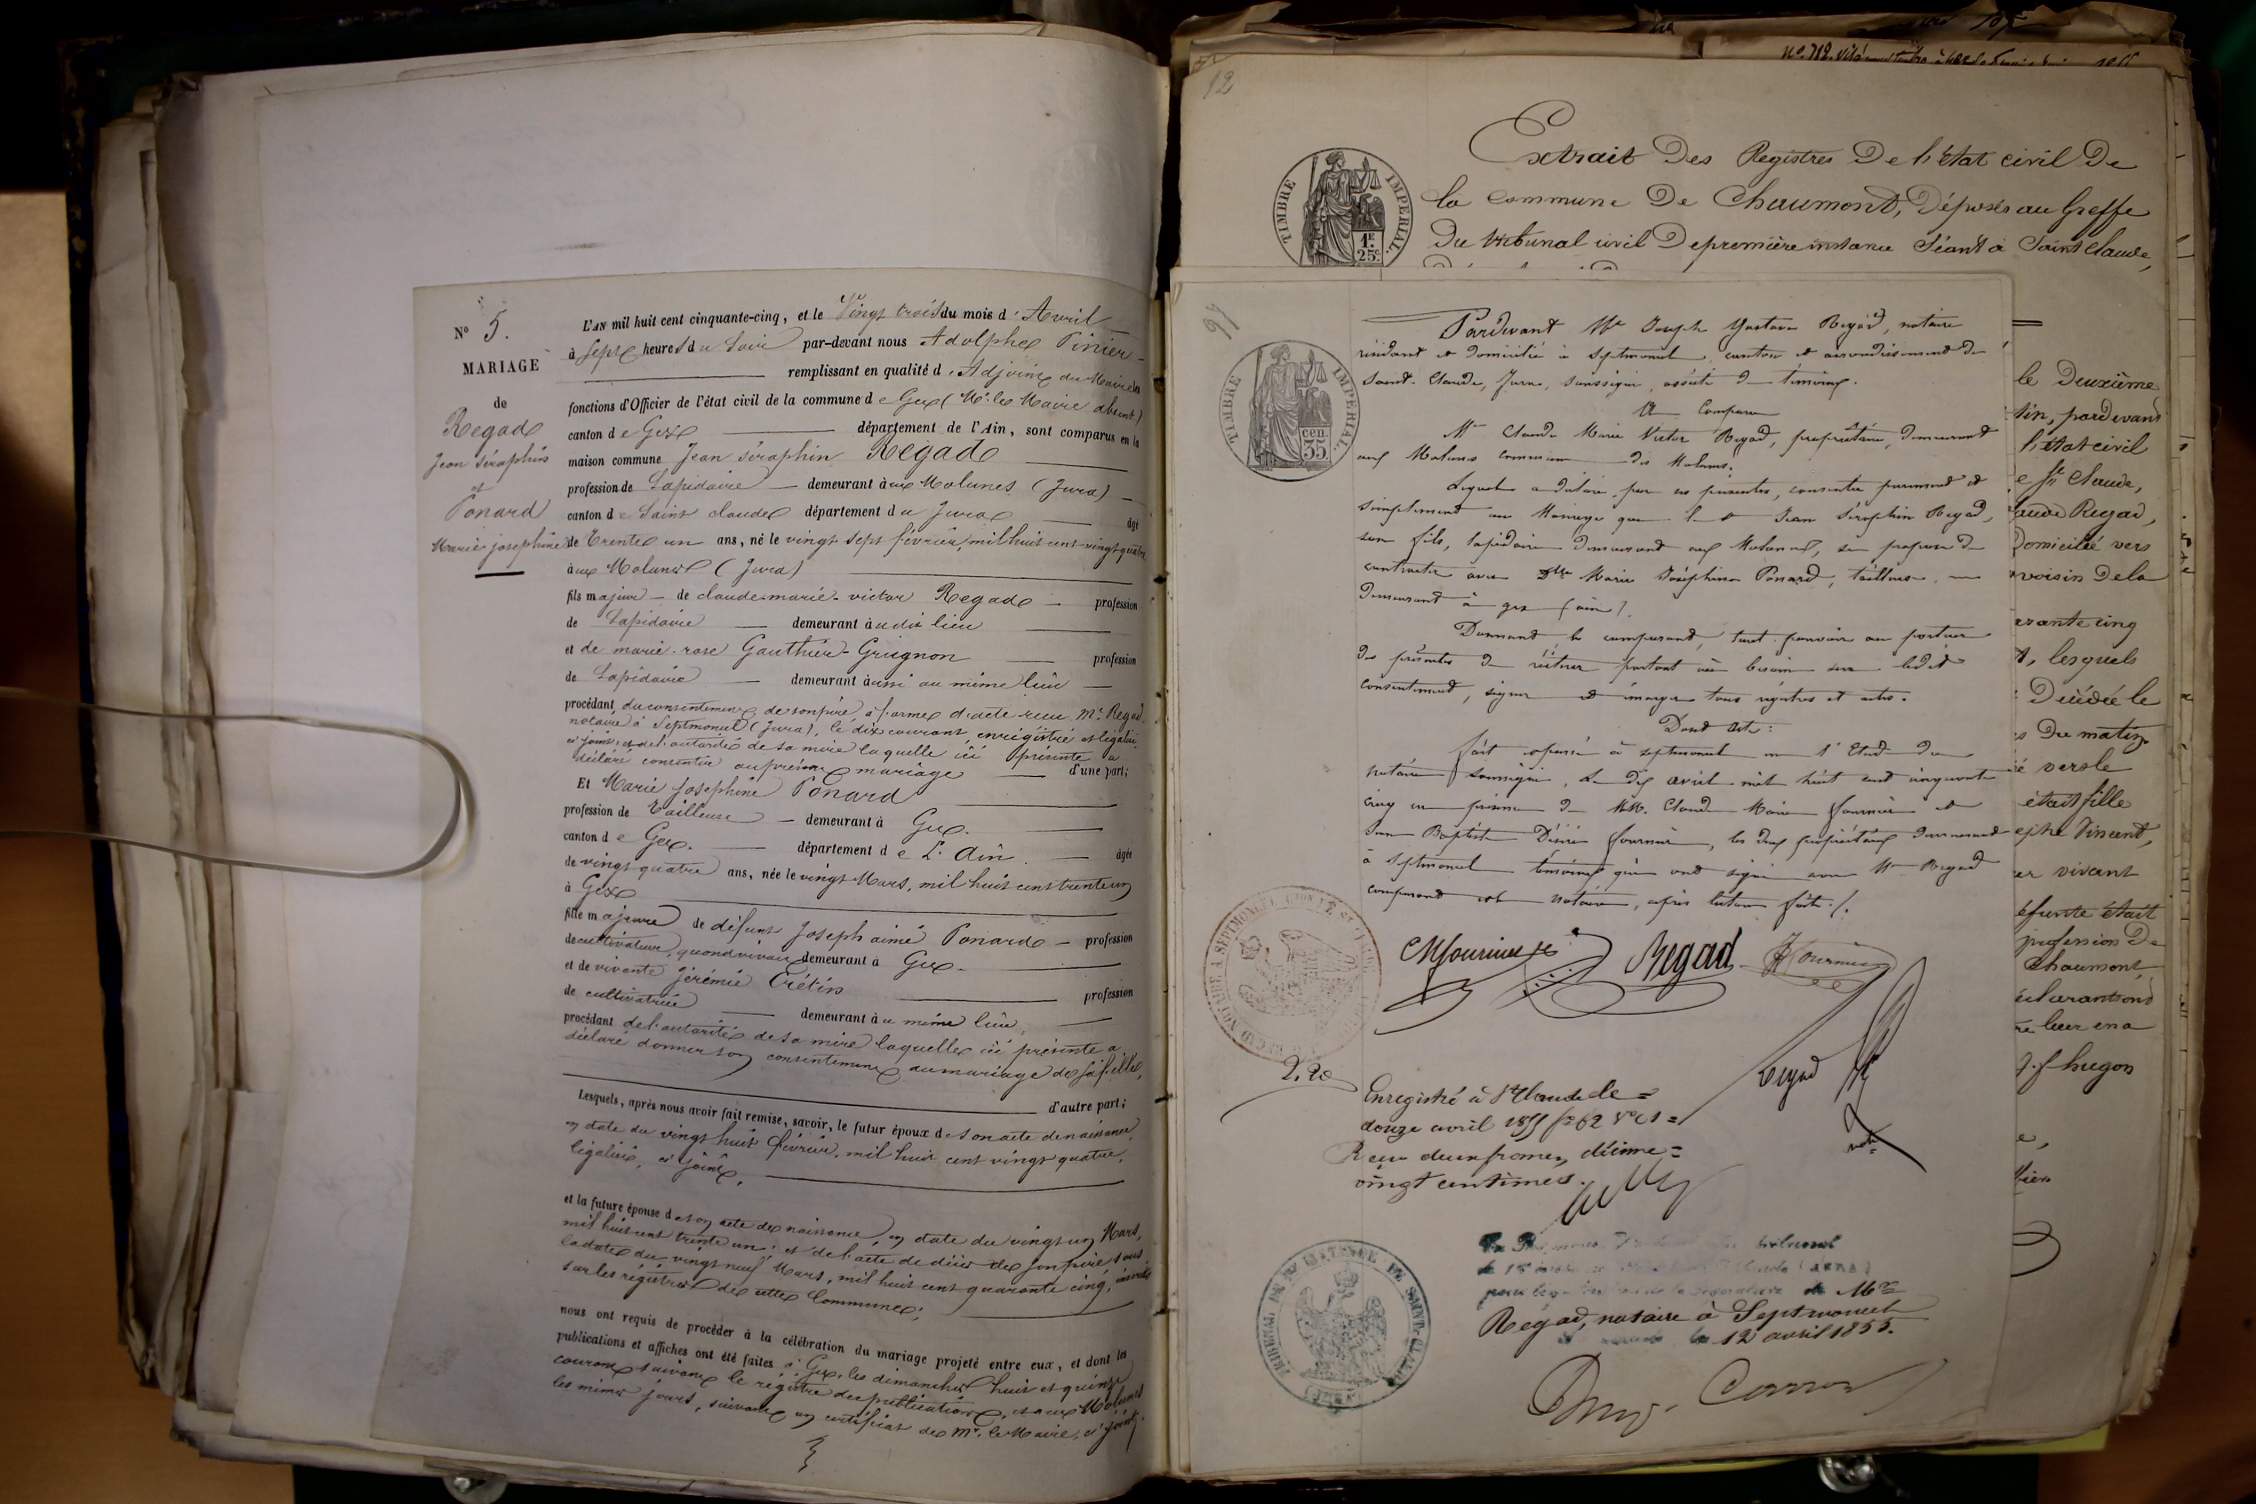 N° 5.
MARIAGE
de
Regad
Jean séraphin
et
Ponard
Marie josephine
L'AN mil huit cent cinquante-cinq, et le Vingt trois du mois d'Avril
à sept heures du Soir par-devant nous Adolphe Pinier
remplissant en qualité d'Adjoint du Maire les
fonctions d'Officier de l'état civil de la commune de Gex (Mr. le Maire absent)
canton de Gex département de l'Ain, sont comparus en la
maison commune Jean séraphin Regad
profession de Lapidaire demeurant à aux Molunes (Jura)
canton de Saint claude département du Jura âgé
de Trente un ans, né le vingt sept février, mil huit cent vingt quatre
à aux Molunes (Jura)
fils majeur de claude-marie-victor Regad profession
de Lapidaire demeurant à udit lieu
et de marie-rose Gauthier-Grignon profession
de Lapidaire demeurant à aussi au même lieu
procédant du consentement de son père, à forme d'acte reçu Mr. Regad
notaire à Septmoncel (Jura), le dix courant, enregistré et légalisé,
ci joint; et de l'autorité de sa mère laquelle ici présente a
déclaré consentir au présent mariage d'une part;
Et Marie Josephine Ponard
profession de Tailleuse demeurant à Gex.
canton de Gex. département de L'Ain. âgée
de vingt quatre ans, née le vingt Mars, mil huit cent trente un
à Gex
fille majeure de défunt Joseph aimé Ponard profession
de cultivateur, quand vivait demeurant à Gex.
et de vivante Jérémie Crétin profession
de cultivatrice demeurant à u même lieu,
procédant de l'autorité de sa mère laquelle ici présente a
déclaré donner son consentement au mariage de sa fille,
d'autre part;
Lesquels, après nous avoir fait remise, savoir, le futur époux de son acte de naissance,
en date du vingt huit février, mil huit cent vingt quatre,
légalisé, ci joint,
et la future épouse de son acte de naissance, en date du vingt un Mars,
mil huit cent trente un; et de l'acte de décès de son père sous
la date du vingt neuf Mars, mil huit cent quarante cinq, inscrits
sur les régistres de cette Commune;
nous ont requis de procéder à la célébration du mariage projeté entre eux, et dont les
publications et affiches ont été faites à Gex, les dimanches huit et quinze
courant, suivant le régistre de publications, et aux Molunes
les mêmes jours, suivant un certificat de Mr. le Maire, ci joint,
12
Extrait Des Registres De l'état civil De
la commune De Chaumont, Déposés au Greffe
Du tribunal civil De première instance Séant à Saint Claude,
TIMBRE IMPERIAL.
1F. 25c.
97
TIMBRE IMPERIAL.
cen. 35
Pardevant Me Joseph Gustave Regad, notaire
résidant et domicilié à Septmoncel, canton et arrondissement de
Saint-Claude, Jura, soussigné, assisté de témoins.
A Comparu
Mr Claude Marie Victor Regad, propriétaire, demeurant
aux Molunes commune des Molunes.
Lequel a déclaré par ces présentes, consentir purement et
simplement au Mariage que le Sr Jean Séraphin Regad,
son fils, lapidaire demeurant aux Molunes, se propose de
contracter avec Dlle Marie Joséphine Ponard, tailleuse,
demeurant à gex (ain).
Donnant, le comparant, tout pouvoir au porteur
des présentes de réitérer partout où besoin sera ledit
consentement, signer et émarger tous registres et actes.
Dont acte:
fait et passé à septmoncel en l'Etude du
notaire soussigné, le dix avril mil huit cent cinquante
cinq en présence de MM. Claude Marie fournier et
Jean Baptiste Désiré fournier, les deux propriétaires demeurant
à Septmoncel témoins qui ont signé avec Mr Regad
comparant et le notaire, après lecture faite./.
CMfournier
Regad
Jfournier
Regad
2,20
Enregistré à St Claude le
douze avril 1855 fo 62 vo c1
Reçu deux francs, décime
vingt centimes.
not.
TRIBUNAL DE 1re INSTANCE DE SAINT-CLAUDE (JURA)
Mre
Regad, notaire à Septmoncel
le 12 avril 1855.
le Deuxième
tin, pardevant
l'état civil
e St Claude,
laude Regad,
Domicilié vers
voisin De la
arante cinq
t, lesquels
Décédée le
s Du matin
é vers le
était fille
eph Vincent,
er vivant
éfunte était
profession De
Chaumont,
éclarants ont
re leur en a
j.f hugon